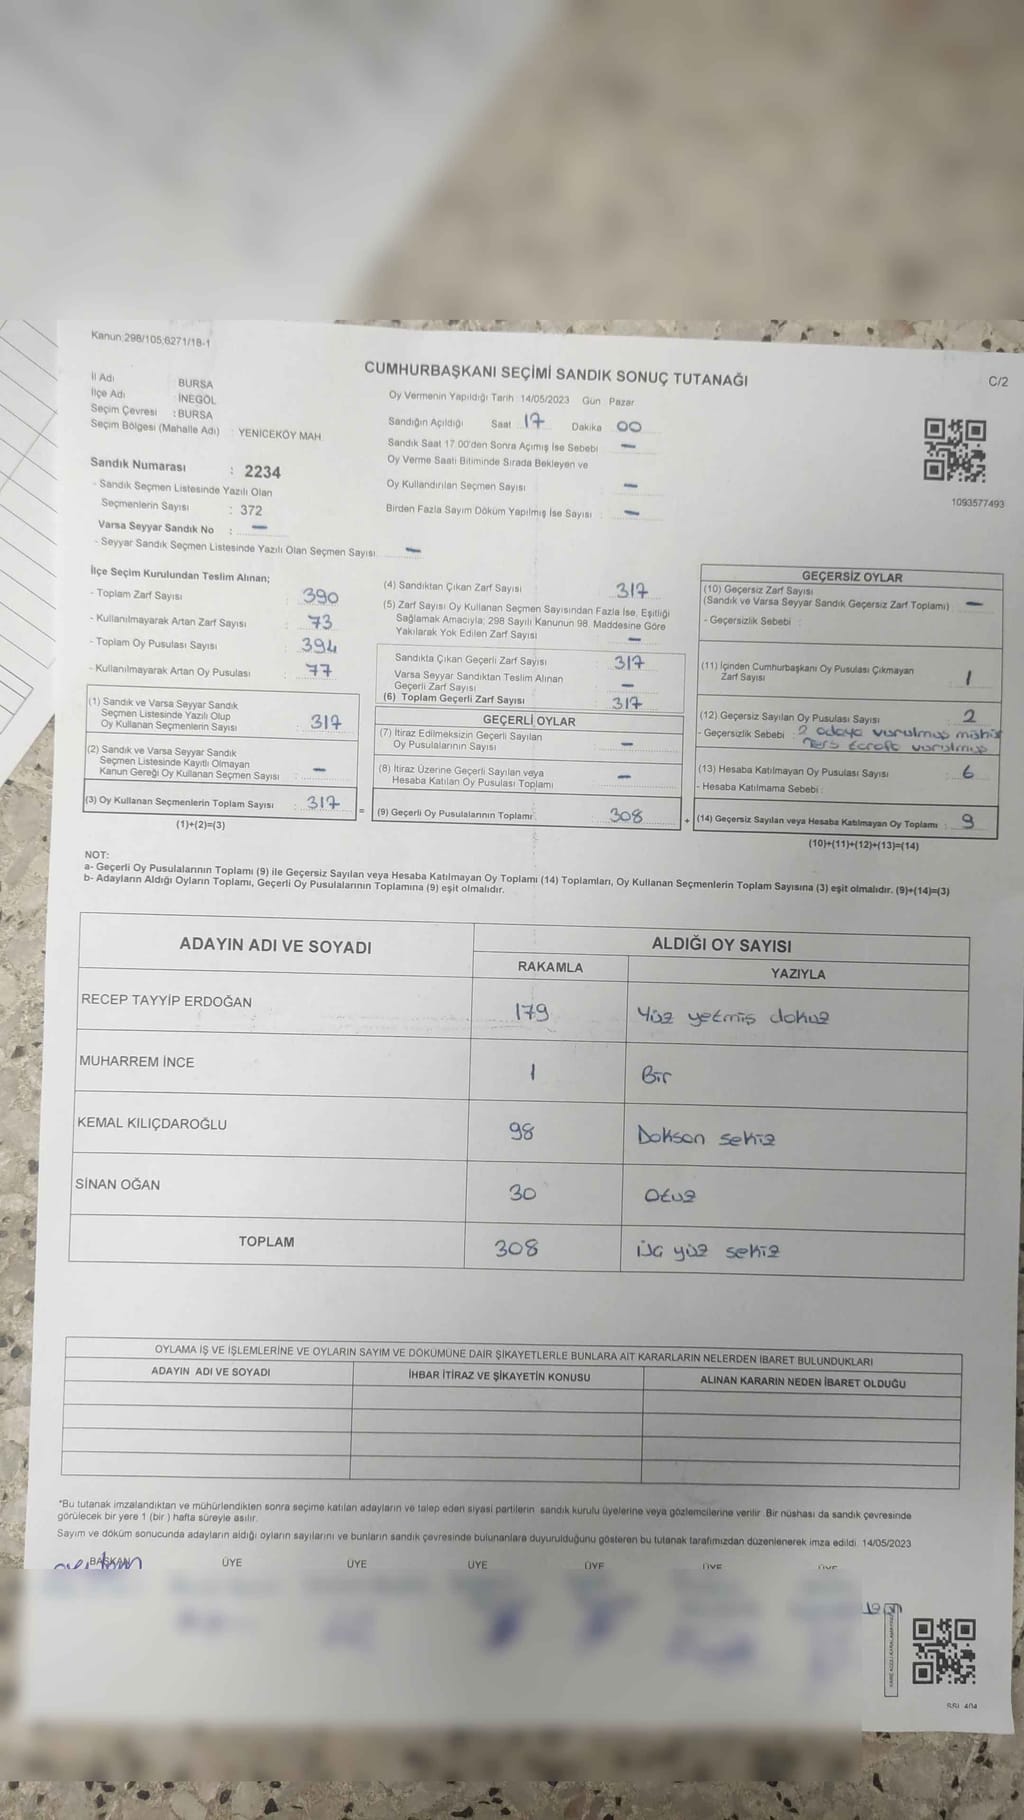 Kanun:298/105;6271/18-1
CUMHURBAŞKANI SEÇİMİ SANDIK SONUÇ TUTANAĞI
C/2
İl Adı : BURSA
İlçe Adı : İNEGÖL
Seçim Çevresi : BURSA
Seçim Bölgesi (Mahalle Adı) : YENİCEKÖY MAH.
Sandık Numarası : 2234
- Sandık Seçmen Listesinde Yazılı Olan
Seçmenlerin Sayısı : 372
Varsa Seyyar Sandık No : –
- Seyyar Sandık Seçmen Listesinde Yazılı Olan Seçmen Sayısı –
Oy Vermenin Yapıldığı Tarih : 14/05/2023 Gün : Pazar
Sandığın Açıldığı Saat 17 Dakika 00
Sandık Saat 17.00'den Sonra Açımış İse Sebebi –
Oy Verme Saati Bitiminde Sırada Bekleyen ve
Oy Kullandırılan Seçmen Sayısı –
Birden Fazla Sayım Döküm Yapılmış İse Sayısı : –
1093577493
İlçe Seçim Kurulundan Teslim Alınan;
- Toplam Zarf Sayısı : 390
- Kullanılmayarak Artan Zarf Sayısı : 73
- Toplam Oy Pusulası Sayısı : 394
- Kullanılmayarak Artan Oy Pusulası : 77
(1) Sandık ve Varsa Seyyar Sandık
Seçmen Listesinde Yazılı Olup
Oy Kullanan Seçmenlerin Sayısı : 317
(2) Sandık ve Varsa Seyyar Sandık
Seçmen Listesinde Kayıtlı Olmayan
Kanun Gereği Oy Kullanan Seçmen Sayısı : –
(3) Oy Kullanan Seçmenlerin Toplam Sayısı : 317
(1)+(2)=(3)
=
(4) Sandıktan Çıkan Zarf Sayısı 317
(5) Zarf Sayısı Oy Kullanan Seçmen Sayısından Fazla İse, Eşitliği
Sağlamak Amacıyla; 298 Sayılı Kanunun 98. Maddesine Göre
Yakılarak Yok Edilen Zarf Sayısı –
Sandıkta Çıkan Geçerli Zarf Sayısı : 317
Varsa Seyyar Sandıktan Teslim Alınan
Geçerli Zarf Sayısı –
(6) Toplam Geçerli Zarf Sayısı : 317
GEÇERLİ OYLAR
(7) İtiraz Edilmeksizin Geçerli Sayılan
Oy Pusulalarının Sayısı : –
(8) İtiraz Üzerine Geçerli Sayılan veya
Hesaba Katılan Oy Pusulası Toplamı : –
(9) Geçerli Oy Pusulalarının Toplamı : 308
+
GEÇERSİZ OYLAR
(10) Geçersiz Zarf Sayısı
(Sandık ve Varsa Seyyar Sandık Geçersiz Zarf Toplamı) –
- Geçersizlik Sebebi :
(11) İçinden Cumhurbaşkanı Oy Pusulası Çıkmayan
Zarf Sayısı : 1
(12) Geçersiz Sayılan Oy Pusulası Sayısı : 2
- Geçersizlik Sebebi : 2 adaya vurulmuş mühür
Ters tarafa vurulmuş
(13) Hesaba Katılmayan Oy Pusulası Sayısı : 6
- Hesaba Katılmama Sebebi :
(14) Geçersiz Sayılan veya Hesaba Katılmayan Oy Toplamı : 9
(10)+(11)+(12)+(13)=(14)
NOT:
a- Geçerli Oy Pusulalarının Toplamı (9) ile Geçersiz Sayılan veya Hesaba Katılmayan Oy Toplamı (14) Toplamları, Oy Kullanan Seçmenlerin Toplam Sayısına (3) eşit olmalıdır. (9)+(14)=(3)
b- Adayların Aldığı Oyların Toplamı, Geçerli Oy Pusulalarının Toplamına (9) eşit olmalıdır.
ADAYIN ADI VE SOYADI ALDIĞI OY SAYISI
RAKAMLA YAZIYLA
RECEP TAYYİP ERDOĞAN 179 Yüz yetmiş dokuz
MUHARREM İNCE 1 Bir
KEMAL KILIÇDAROĞLU 98 Doksan sekiz
SİNAN OĞAN 30 Otuz
TOPLAM 308 üç yüz sekiz
OYLAMA İŞ VE İŞLEMLERİNE VE OYLARIN SAYIM VE DÖKÜMÜNE DAİR ŞİKAYETLERLE BUNLARA AİT KARARLARIN NELERDEN İBARET BULUNDUKLARI
ADAYIN ADI VE SOYADI İHBAR İTİRAZ VE ŞİKAYETİN KONUSU ALINAN KARARIN NEDEN İBARET OLDUĞU
*Bu tutanak imzalandıktan ve mühürlendikten sonra seçime katılan adayların ve talep eden siyasi partilerin sandık kurulu üyelerine veya gözlemcilerine verilir. Bir nüshası da sandık çevresinde
görülecek bir yere 1 (bir ) hafta süreyle asılır.
Sayım ve döküm sonucunda adayların aldığı oyların sayılarını ve bunların sandık çevresinde bulunanlara duyurulduğunu gösteren bu tutanak tarafımızdan düzenlenerek imza edildi. 14/05/2023
BAŞKAN ÜYE ÜYE ÜYE ÜYE ÜYE ÜYE